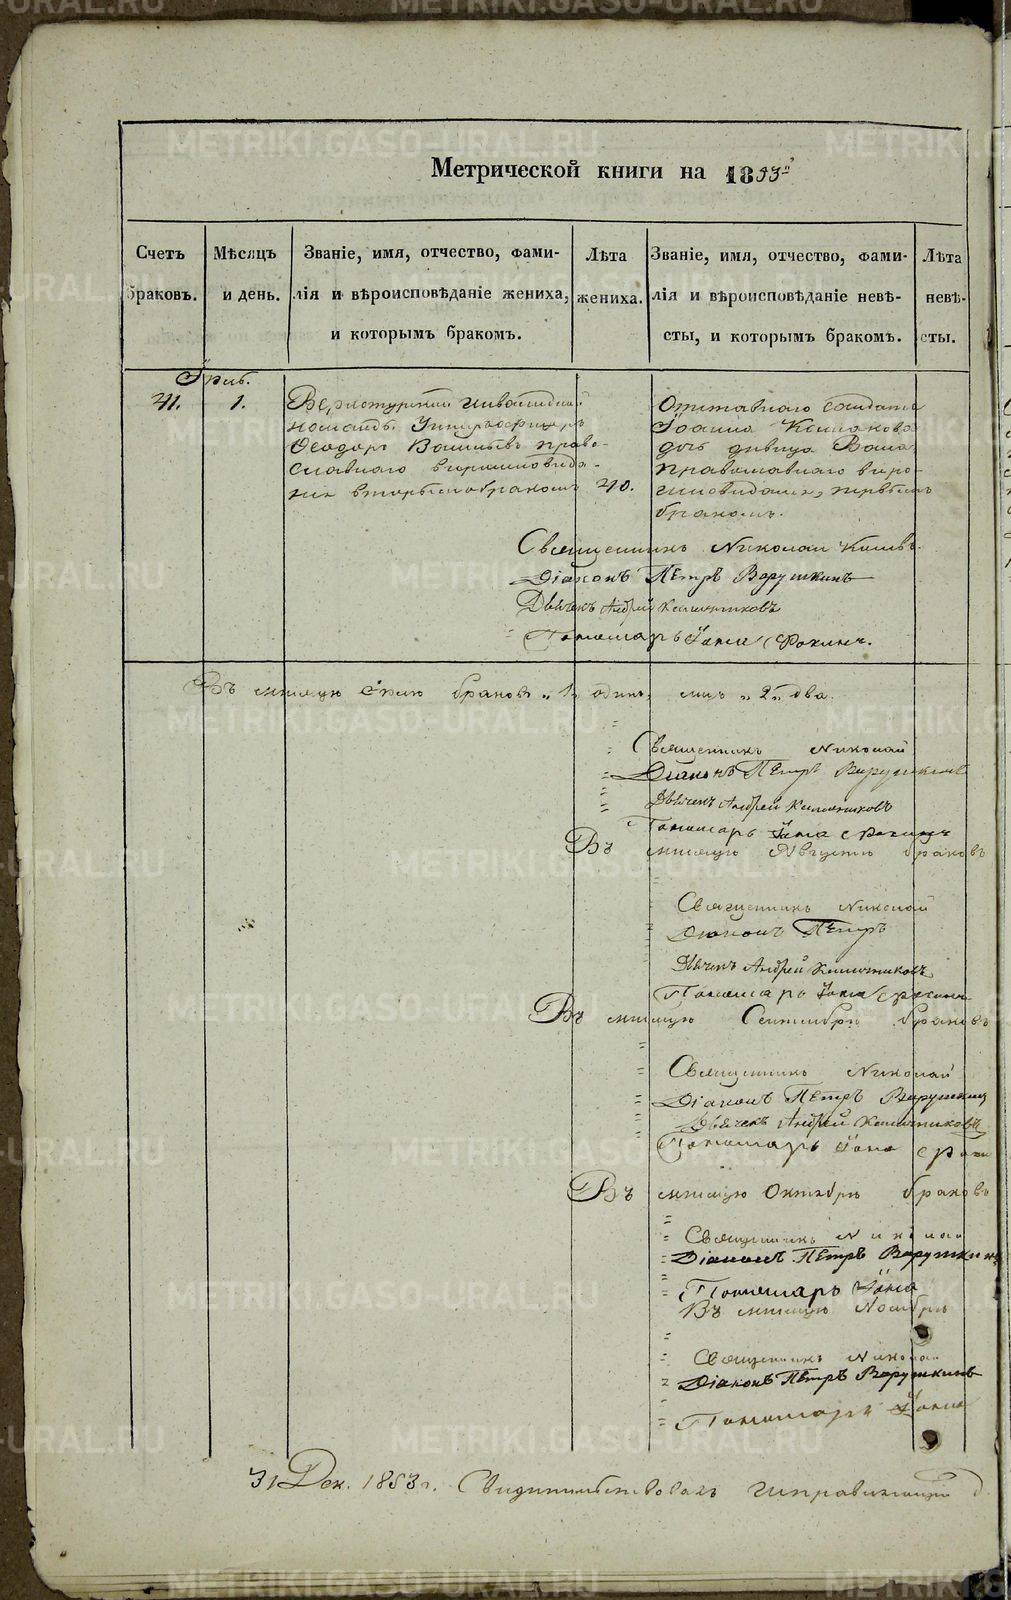 Метрической книги на 1853й
Счетъ браковъ.
Мѣсяцъ и день.
Званіе, имя, отчество, фами-
лія и вѣроисповѣданіе жениха,
и которымъ бракомъ.
Лѣта жениха.
Званіе, имя, отчество, фами-
лія и вѣроисповѣданіе невѣ-
сты, и которымъ бракомъ.
Лѣта невѣ-
сты.
1.
Верхотурской инвалидной
команды Унтеръ офицеръ
Ѳеодоръ Васильевъ право-
славнаго вѣроисповѣда-
нія вторымъ бракомъ
40.
Отставнаго солдата
Іоанна
дочь девица
православнаго вѣро-
исповѣданія, первымъ
бракомъ.
Священникъ Николай
Діаконъ Пётръ Варушкинъ
Дьячекъ Андрей Калачниковъ
Пономарь Іона Фокинъ.
Въ мѣсяцѣ браковъ „1„ одинъ, лицъ „2„ два.
Священникъ Николай
Діаконъ Пётръ Варушкинъ
Дьячекъ Андрей Калачниковъ
Пономарь Іона Фокинъ
Въ мѣсяцѣ Августѣ браковъ
Священникъ Николай
Діаконъ Пётръ
Дьячекъ Андрей Калачниковъ
Пономарь Іона Фокинъ
Въ мѣсяцѣ Сентябрѣ браковъ
Священникъ Николай
Діаконъ Пётръ Варушкинъ
Дьячекъ Андрей Калачниковъ
Пономарь Іона
Въ мѣсяцѣ Октябрѣ браковъ
Священникъ Николай
Діаконъ Пётръ Варушкинъ
Пономарь Іона
Въ мѣсяцѣ Ноябрѣ
Священникъ Николай
Діаконъ Пётръ Варушкинъ
Пономарь Іона
31 Дек. 1853 г. Свидѣтельствовалъ исправляющій д.
METRIKI.GASO-URAL.RU